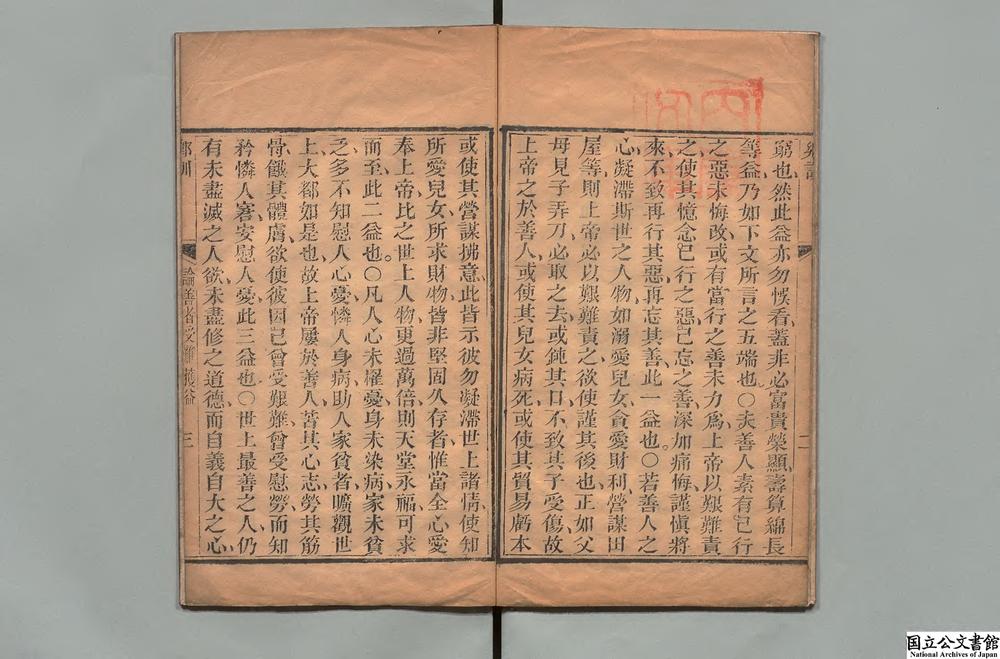 窮也然此益亦勿悞看葢非必富貴榮顯壽算綿長
等益乃如下文所言之五端也○夫善人素有已行
之惡未悔改或有當行之善未力爲上帝以艱難責
之使其憶念已行之惡已忘之善深加痛悔謹愼將
來不致再行其惡再忘其善此一益也○若善人之
心凝滯斯世之人物如溺愛兒女貪愛財利營謀田
屋等則上帝必以艱難責之欲使謹其後也正如父
母見子弄刀必取之去或鈍其口不致其子受傷故
上帝之於善人或使其兒女病死或使其貿易虧本
或使其營謀拂意此皆示彼勿凝滯世上諸情使知
所愛兒女所求財物皆非堅固久存者惟當全心愛
奉上帝比之世上人物更過萬倍則天堂永福可求
而至此二益也○凡人心未罹憂身未染病家未貧
乏多不知慰人心憂憐人身病助人家貧者曠觀世
上大都如是也故上帝屢於善人苦其心志勞其筋
骨餓其體膚欲使彼因己曾受艱難曾受慰勞而知
矜憐人窘安慰人憂此三益也○世上最善之人仍
有未盡滅之人欲未盡修之道德而自義自大之心
論善者受難獲益
二
三
国立公文書館
National Archives of Japan